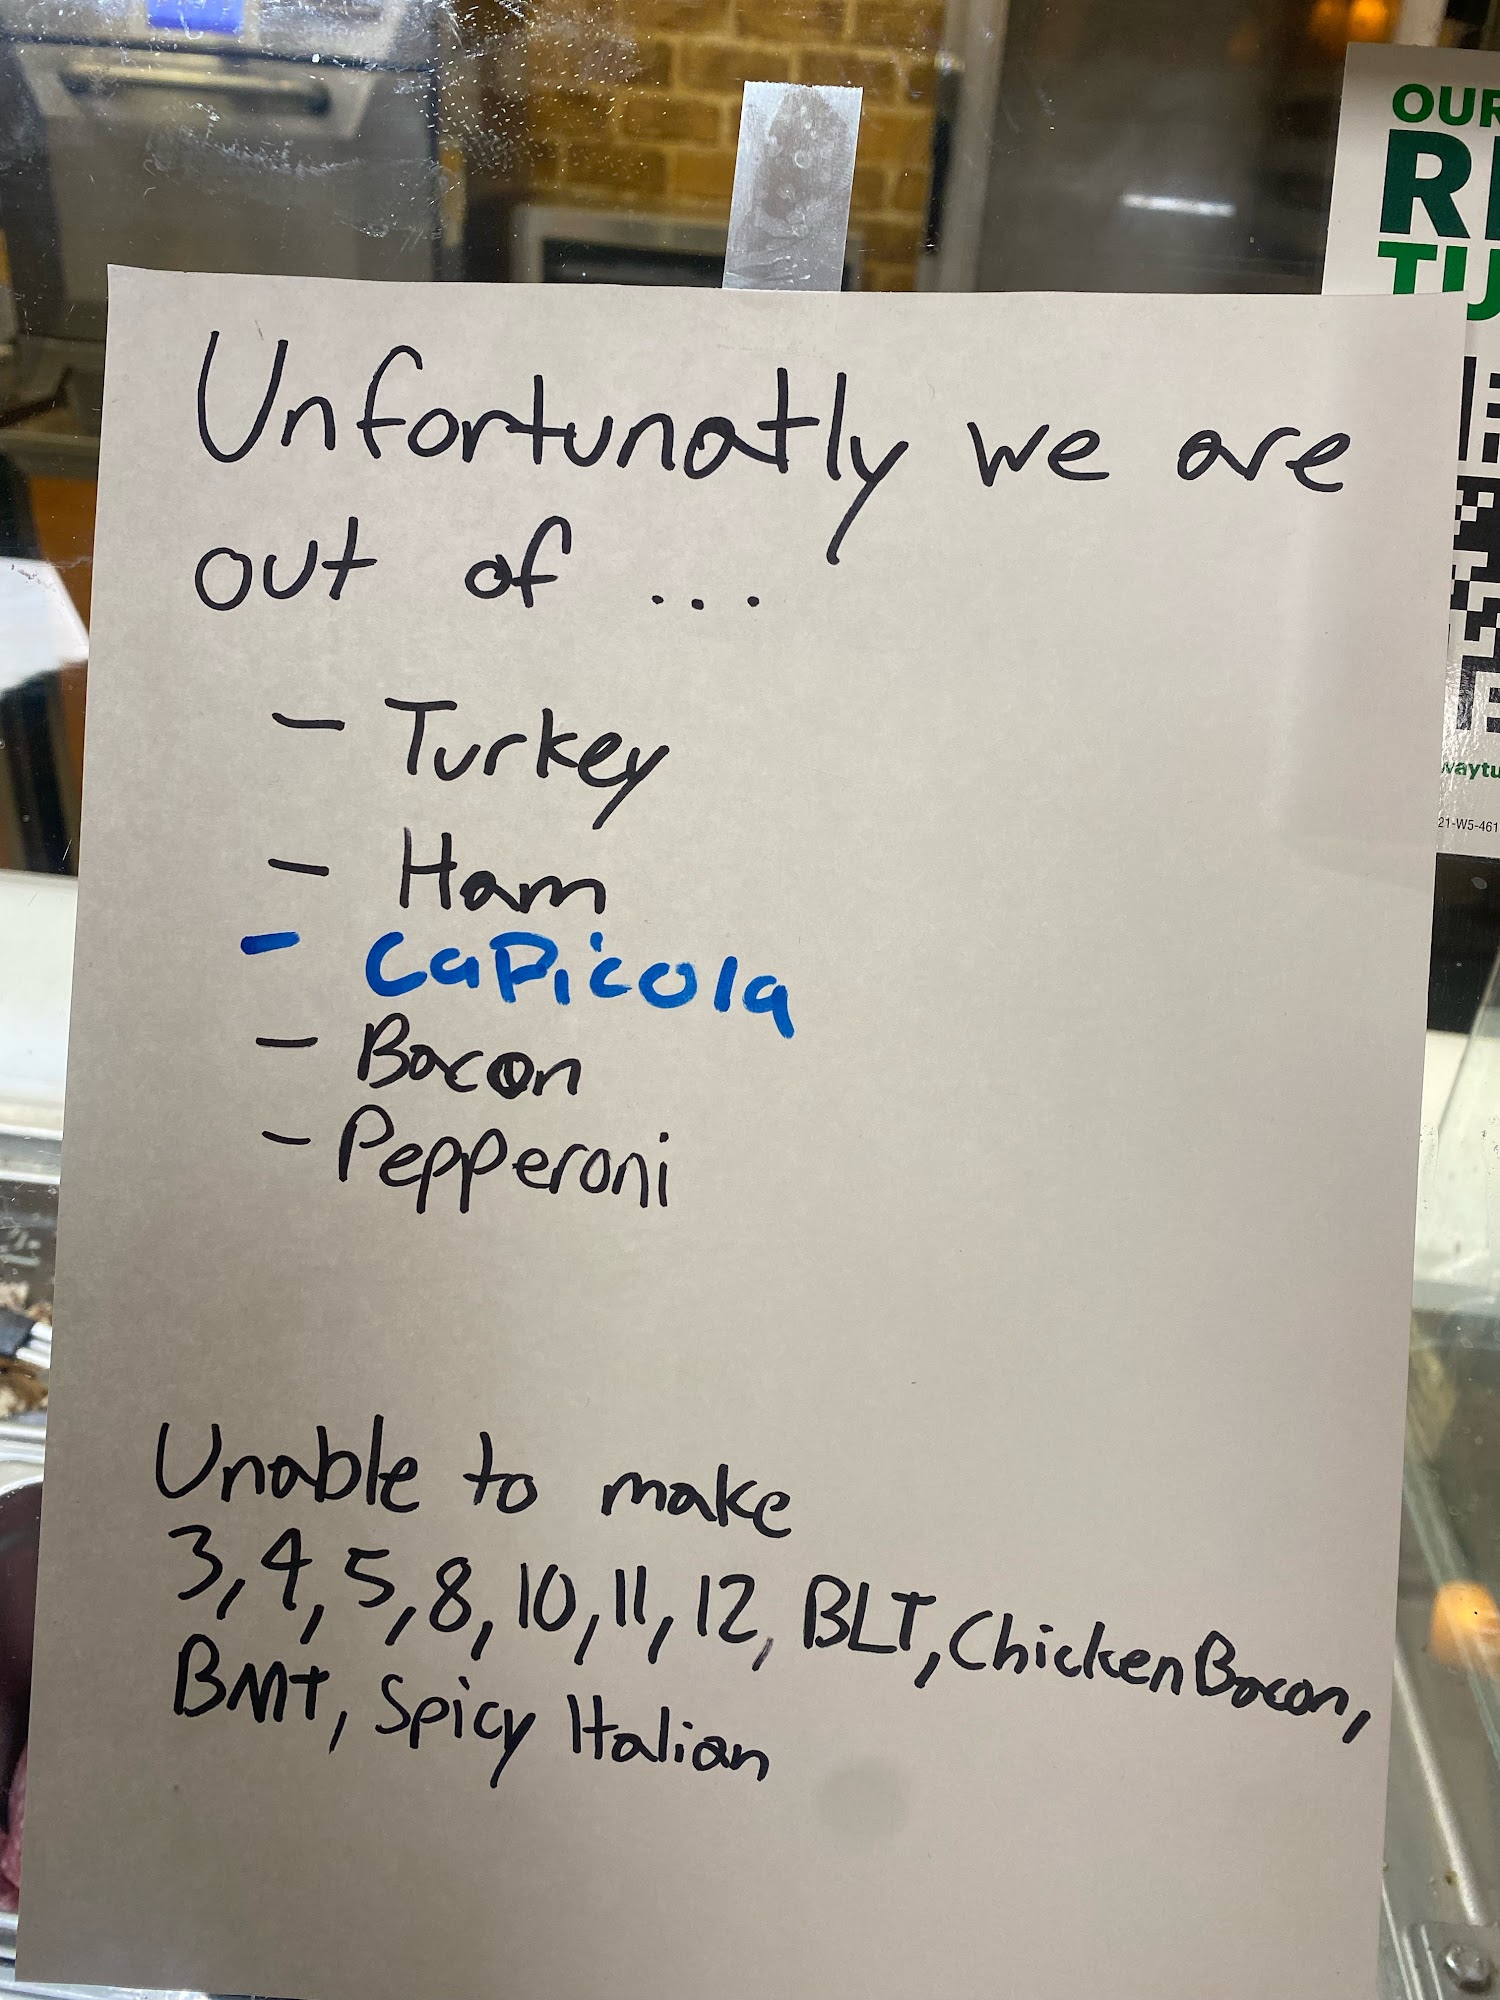 OUR
Unfortunatly we are
out of ...
- Turkey
- Ham
- CaPicola
- Bacon
- Pepperoni
Unable to make
3, 4, 5, 8, 10, 11, 12, BLT, Chicken Bacon,
BMT, Spicy Italian
21-W5-461